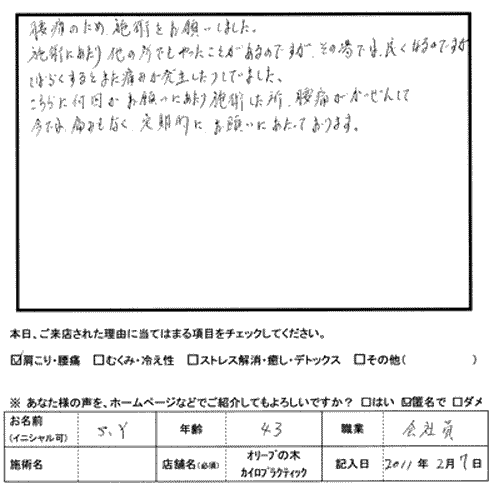 腰痛のため、施術をお願いしました。
施術にあたり他の所でもやったことがあるのですが、その場では、良くなるのですが
しばらくするとまた痛みが発生したりしてました。
こちらに何回かお願いにあたり施術した所、腰痛がかいぜんして
今では、痛みもなく、定期的にお願いにあたっております。
本日、ご来店された理由に当てはまる項目をチェックしてください。
☑肩こり・腰痛 □むくみ・冷え性 □ストレス解消・癒し・デトックス □その他( )
※ あなた様の声を、ホームページなどでご紹介してもよろしいですか? □はい ☑匿名で □ダメ
お名前(イニシャル可) S.Y 年齢 43 職業 会社員
施術名 店舗名(必須) オリーブの木 カイロプラクティック 記入日 2011年 2月 7日